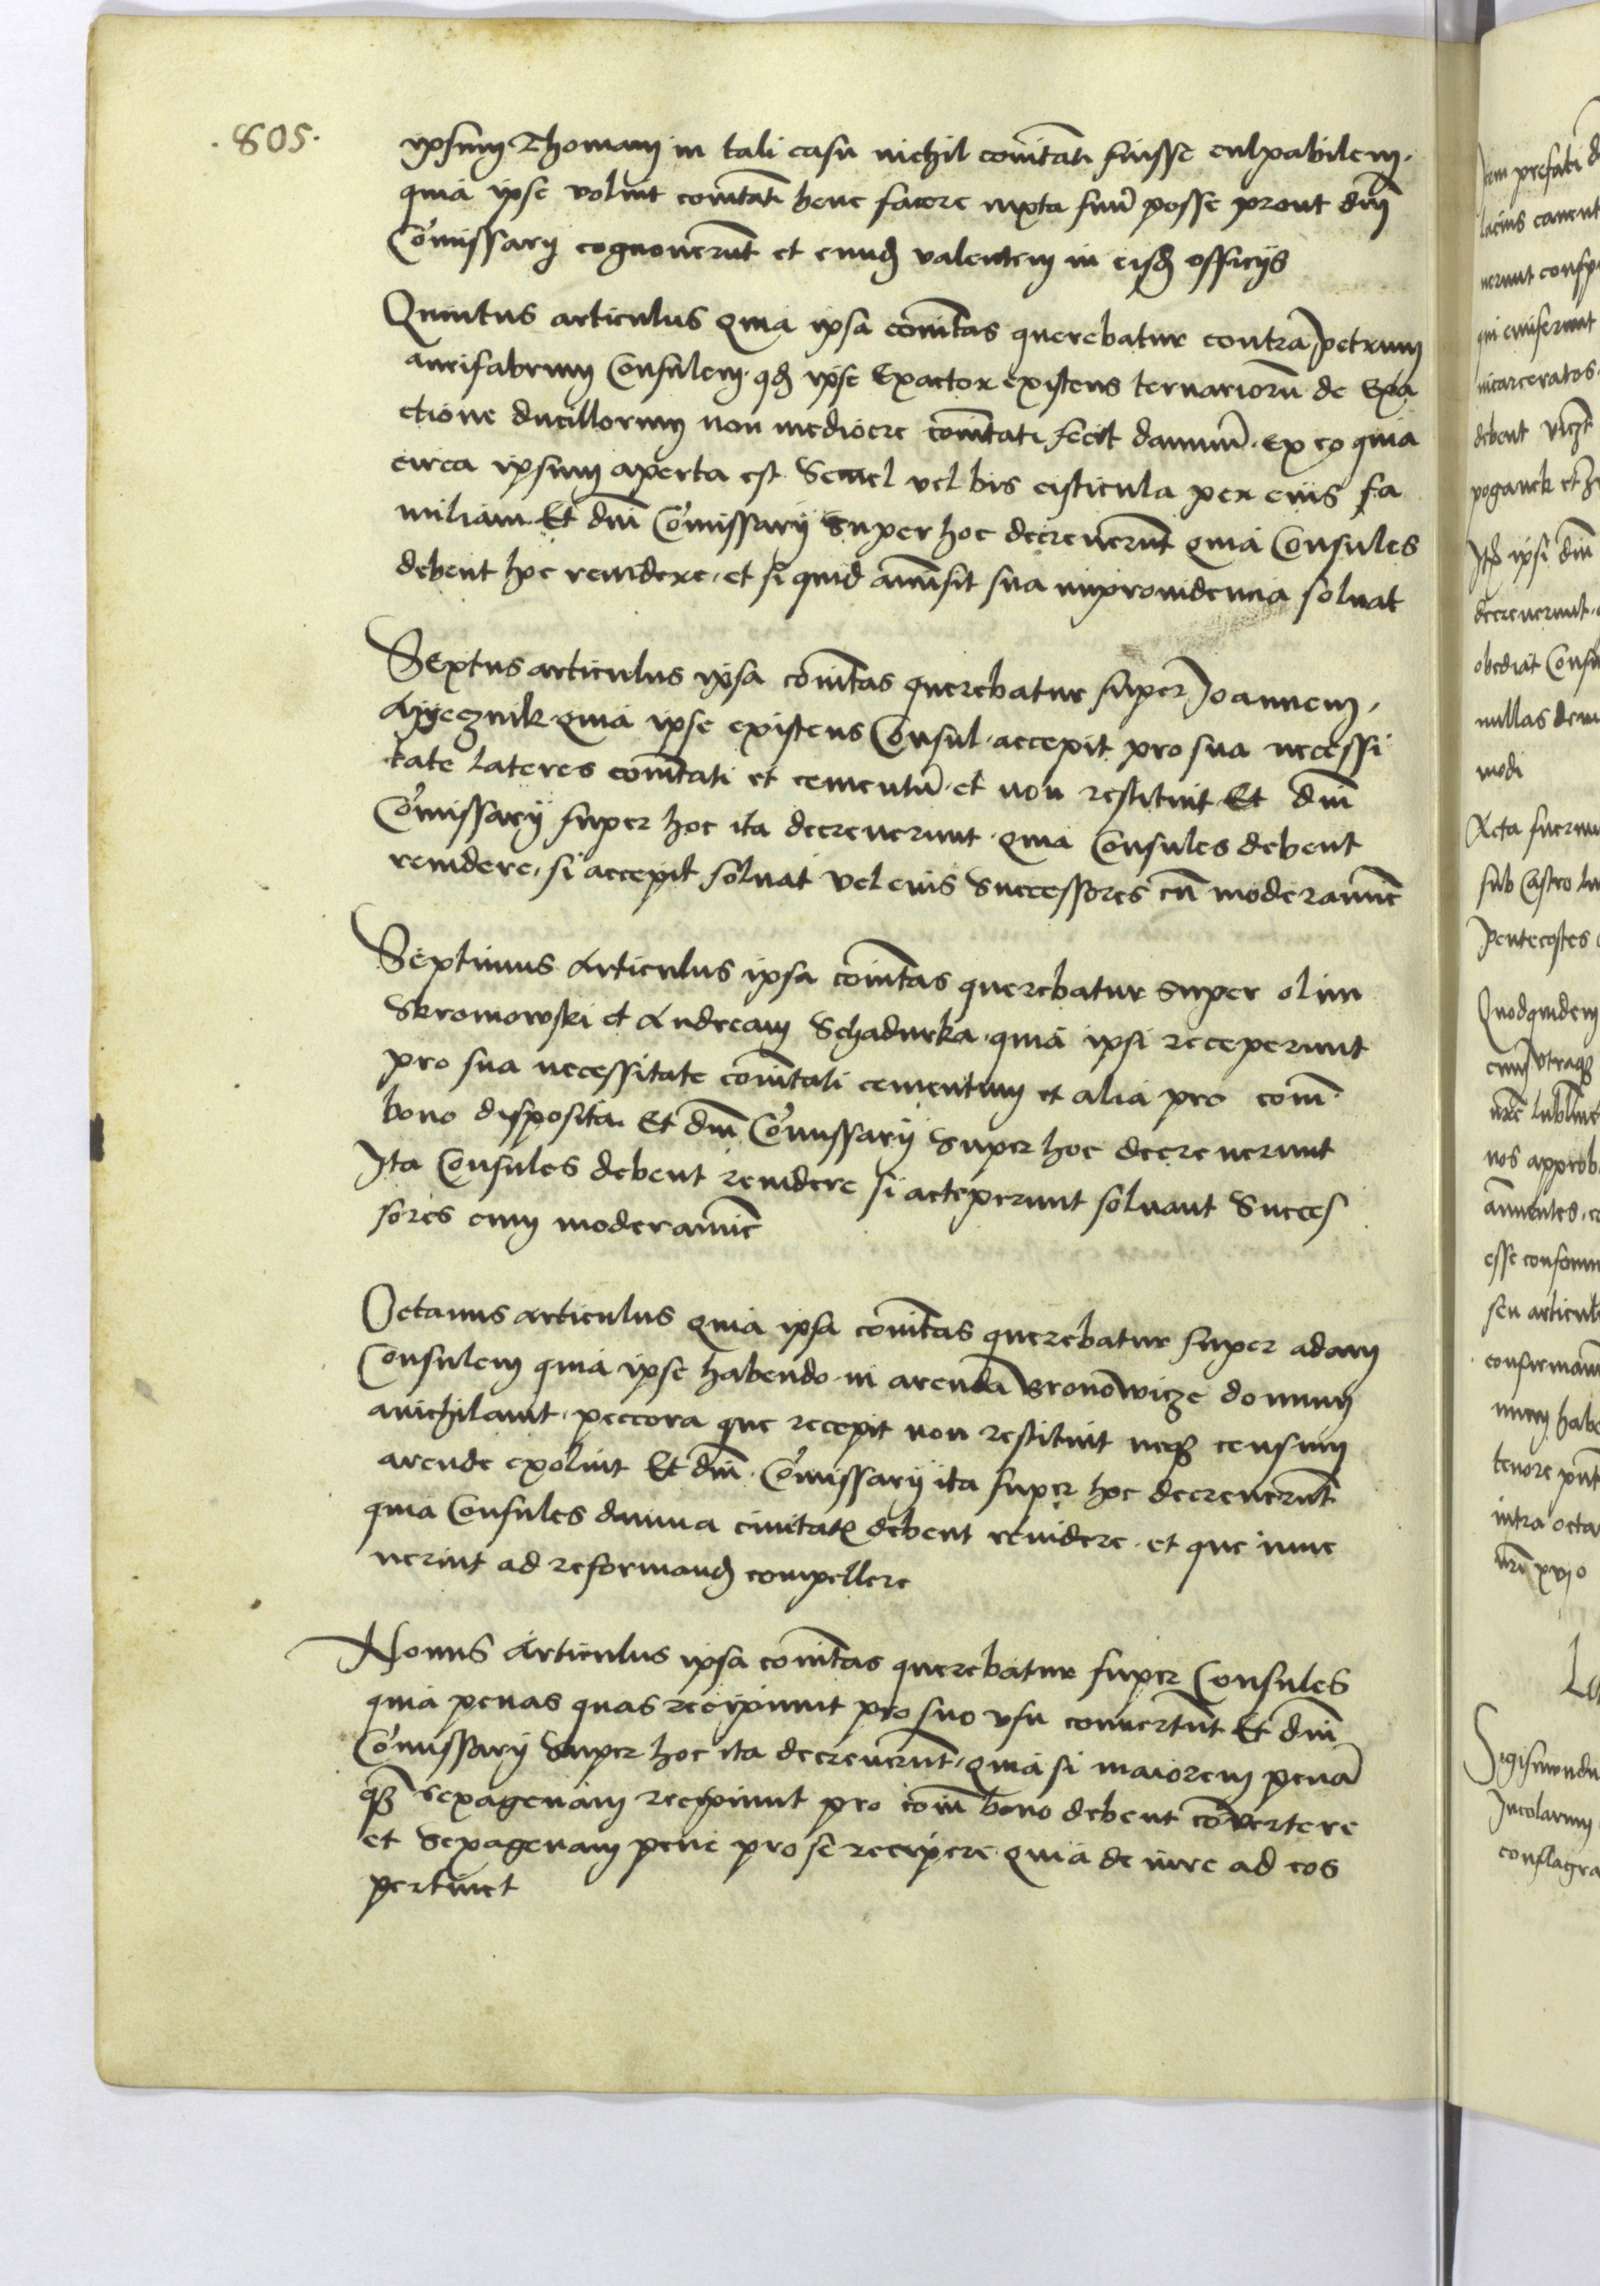 .805.
ipsum Thomam in tali casu nichil coīitati fuisse culpabilem.
quia ipse voluit coīitati bene facere iuxta suū posse prout dnī
Cōmissarij cognouerūt et eundē valentem in eisdē officijs
Quintus articulus quia ipsa coītas querebatur contra Petrum
aurifabrum Consulem. qd ipse Exactor existens ternariorū de Exa
ctione ducillorum non mediocre coītati fecit damnū. ex eo quia
circa ipsum aperta est Semel vel bis cisticula per eius fa
miliam. Et dnī Cōmissarij super hoc decreuerūt quia Consules
debent hoc reuidere. et si quid amisit sua improuidencia soluat
Sextus articulus ipsa coītas querebatur super Joannem
quia ipse existens Consul. accepit pro sua necessi
tate lateres coītati et cementū. et non restituit. Et dnī
Cōmissarij super hoc ita decreuerunt. quia Consules debent
reuidere, si accepit soluat vel eius Successores cū moderamīe
Septimus Articulus ipsa coītas querebatur super olim
Skromowski et Andream Schadurka. quia ipsi receperunt
pro sua necessitate coītati cementum et alia pro coīi
bono disposita. Et dnī Cōmissarij super hoc decreuerunt
Ita Consules debent reuidere si acceperunt soluant Succes
sores cum moderamīe
Octauus articulus quia ipsa coītas querebatur super adam
Consulem quia ipse habendo in arenda Wronowicze domum
anichilauit. peccora que recepit non restituit neqз censum
arende exoluit Et dnī. Cōmissarij ita super hoc decreuerūt
quia Consules damna ciuitatis debent reuidere. et que inue
nerint ad reformandū compellere
Nonus Articulus ipsa coītas querebatur super Consules
quia penas quas recipiunt pro suo vsu conuertūt Et dnī
Cōmissarij super hoc ita decreuerūt, quia si maiorem penā
qз sexagenam recipiunt pro coīi bono debent cōvertere
et Sexagenam pene pro se recipere quia de iure ad eos
pertinet
prefati
lacius
nerunt
incarceratos.
debent
ipsi dnī
decreuerunt.
obediāt
nullas
modi
Acta
sub Castro
Pentecostes
Quodquidem
cum vtraqз
nos
esse
seu
tenore
intra octa
Sigismundus
Incolarum
conflagra